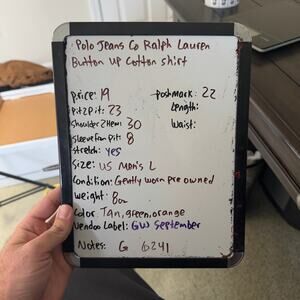 Polo Jeans Co Ralph Lauren
Button Up Cotton shirt
price: 19
postmark: 22
Pit2Pit: 23
Length:
Shoulder2Hem: 30
Waist:
Sleeve from pit: 8
stretch: yes
Size: US Men's L
Condition: Gently worn pre owned
weight: 8oz
Color: Tan, green, orange
Vendoo Label: GW September
Notes: G 6241